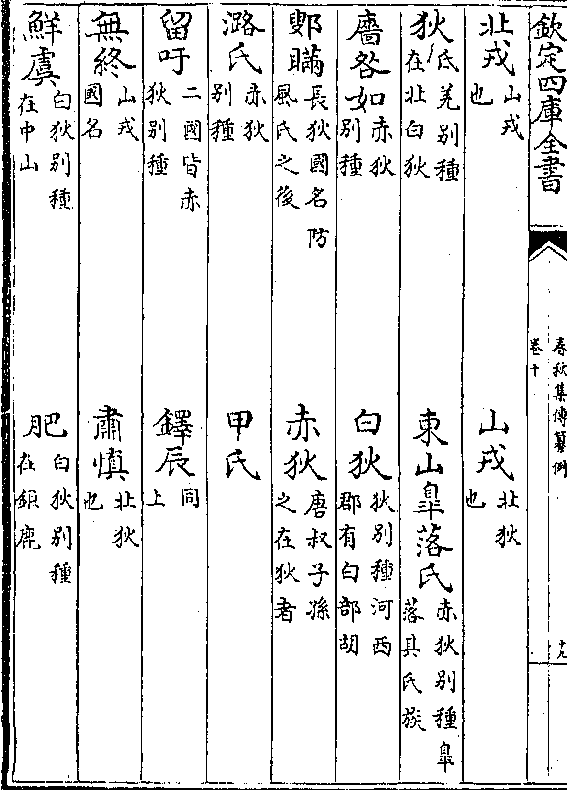 欽定四庫全書
春秋集傳纂例
卷十
十九
北戎 山戎也 山戎 北狄也
狄 氐羌別種在北白狄 東山臯落氏 赤狄別種臯落其氏族
廧咎如 赤狄別種 白狄 狄別種河西郡有白部胡
鄋瞞 長狄國名防風氏之後 赤狄 唐叔子孫之在狄者
潞氏 赤狄別種 甲氏
留吁 二國皆赤狄別種 鐸辰 同上
無終 山戎國名 肅慎 北狄也
鮮虞 白狄別種在中山 肥 白狄別種在鉅鹿